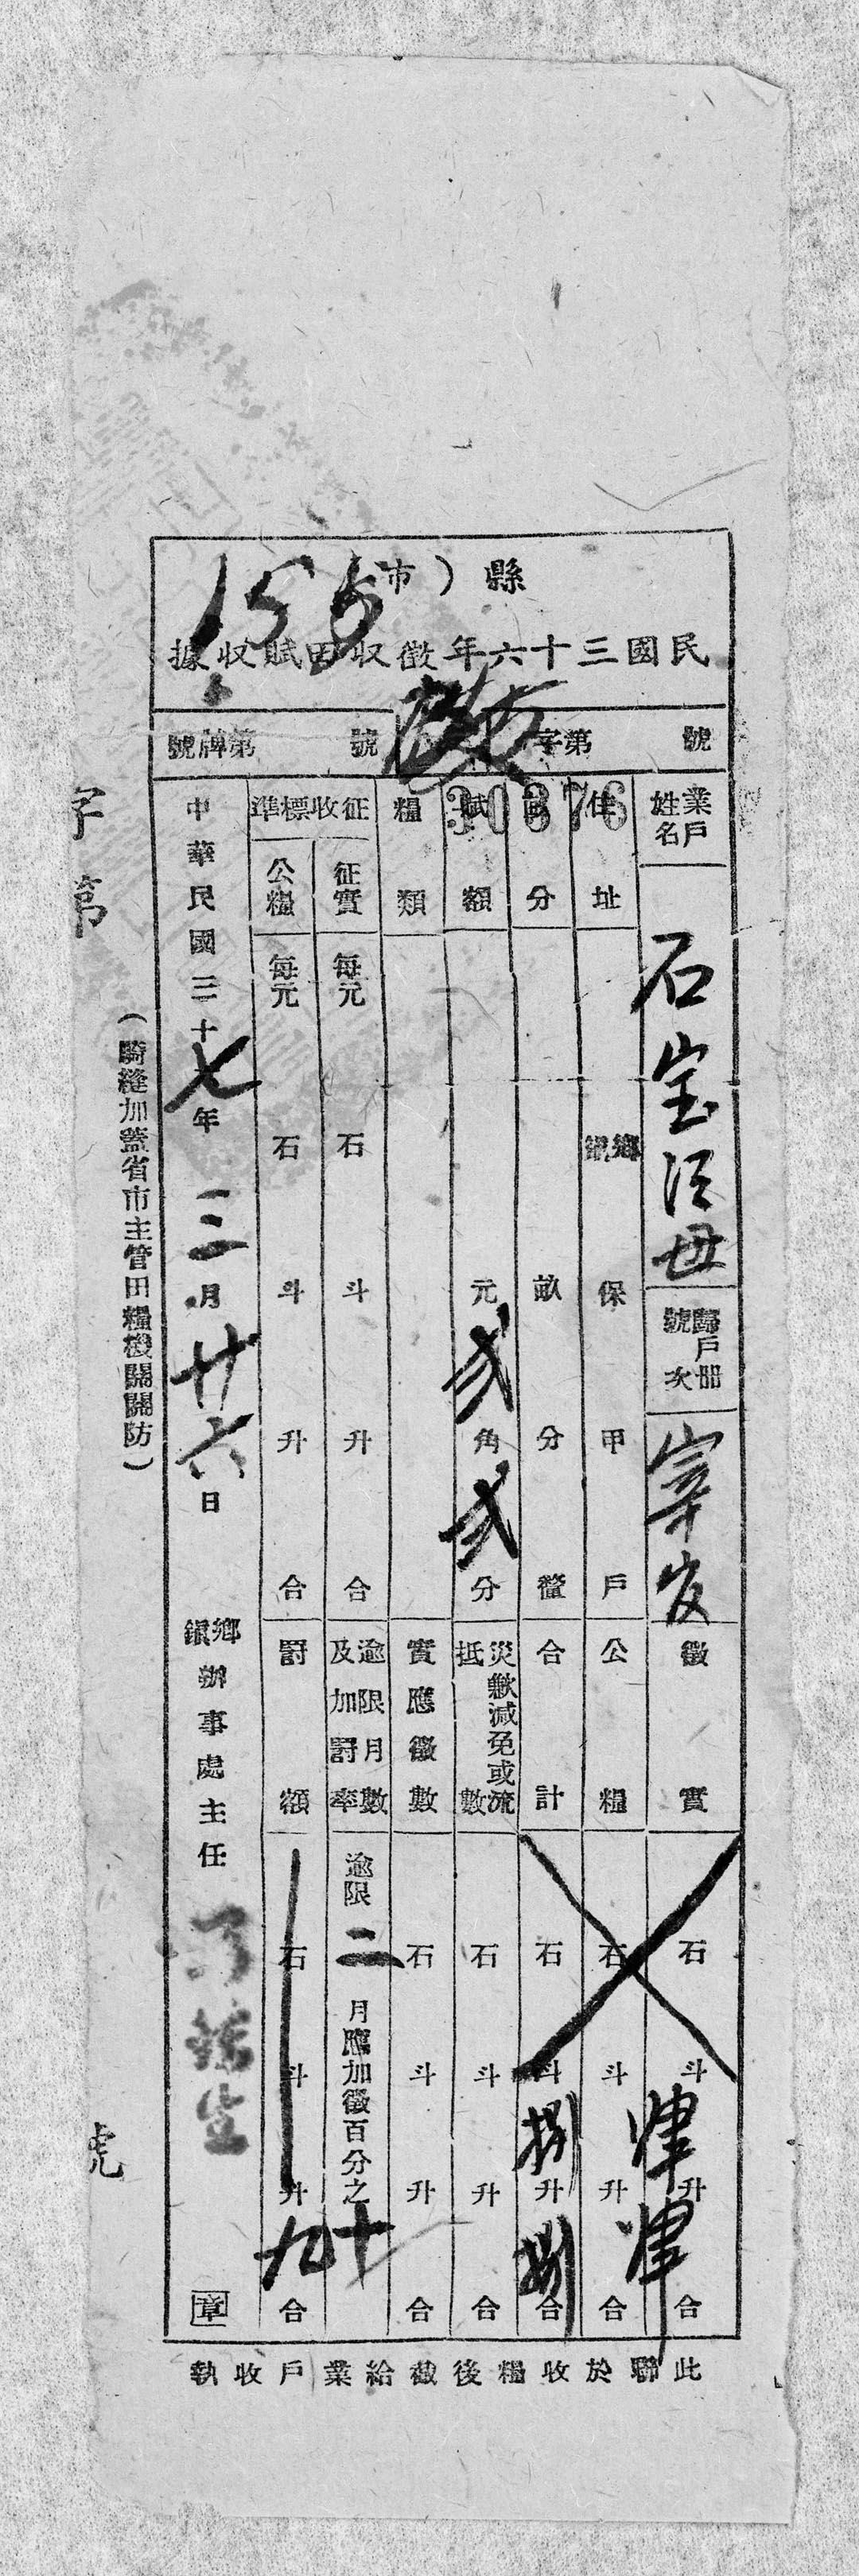 縣（市）
155
民國三十六年徵收田賦收據
字第 號
第 牌號
30376
業戶姓名 石宝 母
歸戶冊號次
徵實 石 斗 升 合
住址 鄉鎮 保 甲 戶
公糧 石 斗 升 合
畝分 畝 分 釐
合計 石 斗 捌 升 捌 合
賦額 元 貳 角 貳 分
災歉減免或流抵數 石 斗 升 合
糧類
實應徵數 石 斗 升 合
征收標準
征實 每元 石 斗 升 合
逾限月數及加罰率 逾限 二 月應加徵百分之 十
公糧 每元 石 斗 升 合
罰額 石 斗 升 九 合
中華民國三十七年 三 月 廿六 日
鄉鎮辦事處主任 章
（騎縫加蓋省市主管田糧機關關防）
字第 號
此聯於收糧後截給業戶收執